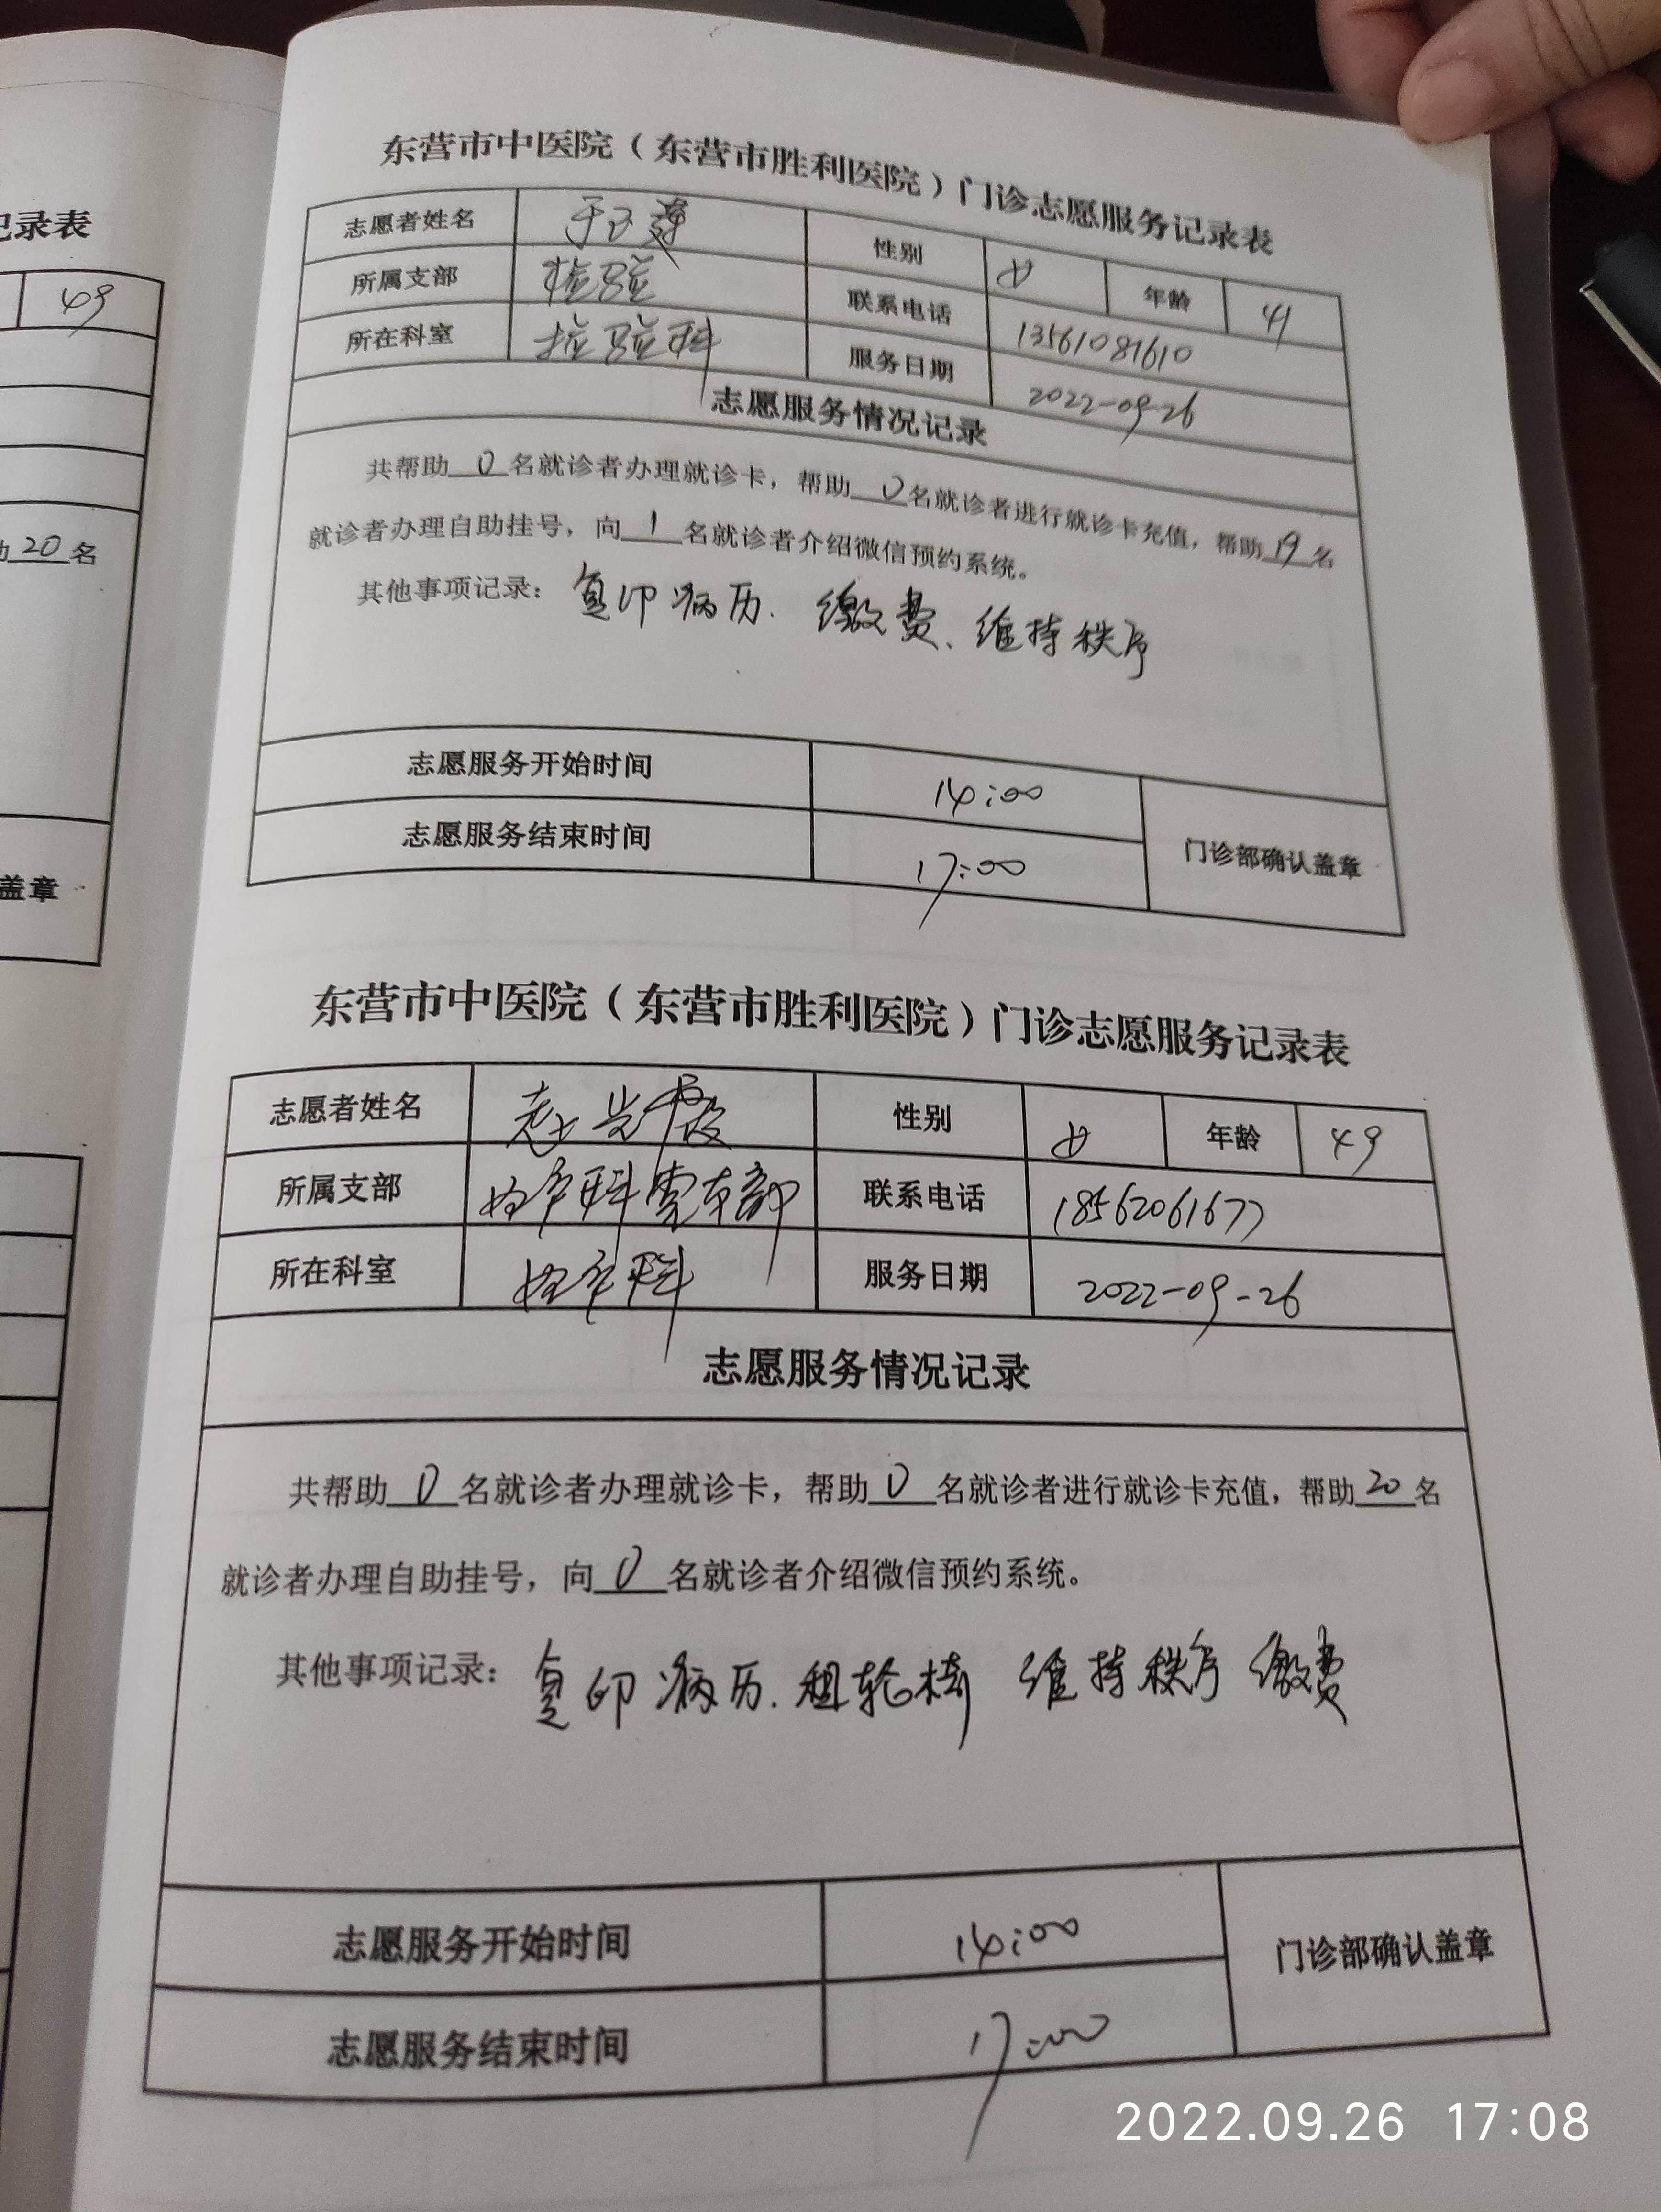 东营市中医院（东营市胜利医院）门诊志愿服务记录表
志愿者姓名 于玉莲 性别 女 年龄 41
所属支部 检验 联系电话 13561081610
所在科室 检验科 服务日期 2022-09-26
志愿服务情况记录
共帮助 0 名就诊者办理就诊卡，帮助 0 名就诊者进行就诊卡充值，帮助 19 名
就诊者办理自助挂号，向 1 名就诊者介绍微信预约系统。
其他事项记录：复印病历.缴费、维持秩序
志愿服务开始时间 14:00
门诊部确认盖章
志愿服务结束时间 17:00
东营市中医院（东营市胜利医院）门诊志愿服务记录表
志愿者姓名 赵兴霞 性别 女 年龄 49
所属支部 妇产科党支部 联系电话 18562061677
所在科室 妇产科 服务日期 2022-09-26
志愿服务情况记录
共帮助 0 名就诊者办理就诊卡，帮助 0 名就诊者进行就诊卡充值，帮助 20 名
就诊者办理自助挂号，向 0 名就诊者介绍微信预约系统。
其他事项记录：复印病历.租轮椅 维持秩序 缴费
志愿服务开始时间 14:00
门诊部确认盖章
志愿服务结束时间 17:00
记录表
49
20 名
盖章
2022.09.26 17:08